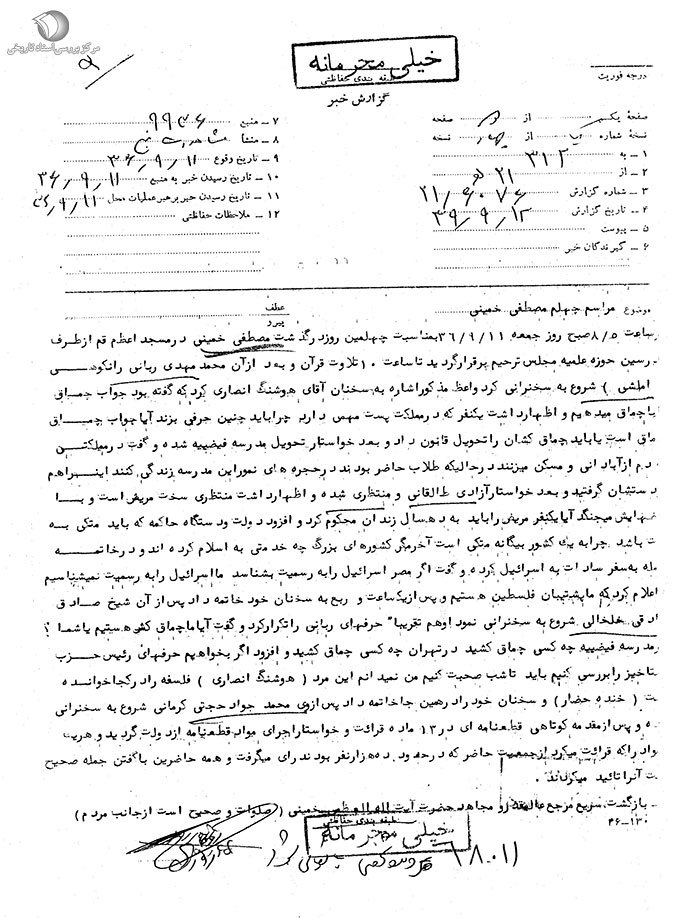 مرکز بررسی اسناد تاریخی
خیلی محرمانه
طبقه بندی حفاظتی
گزارش خبر
درجه فوریت
صفحه یکم از دو صفحه
نسخه شماره از نسخه
۱ ـ به ۳۱۲
۲ ـ از ۲۱
۳ ـ شماره گزارش
۴ ـ تاریخ گزارش
۵ ـ پیوست
۶ ـ گیرندگان خبر
۷ ـ منبع
۸ ـ منشأ
۹ ـ تاریخ وقوع ۳۶/۹/۱۱
۱۰ ـ تاریخ رسیدن خبر به منبع ۳۶/۹/۱۱
۱۱ ـ تاریخ رسیدن خبر برهبر عملیات محل ۳۶/۹/۱۱
۱۲ ـ ملاحظات حفاظتی
موضوع : مراسم چهلم مصطفی خمینی
عطف
پیرو
ساعت ۸/۵ صبح روز جمعه ۳۶/۹/۱۱ بمناسبت چهلمین روز درگذشت مصطفی خمینی در مسجد اعظم قم از طرف
درسین حوزه علمیه مجلس ترحیم برقرار گردید تا ساعت ۱۰ تلاوت قرآن و بعد از آن محمد مهدی ربانی رانکوهی
املشی ) شروع به سخنرانی کرد واعظ مذکور اشاره به سخنان آقای هوشنگ انصاری کرد که گفته بود جواب چماق
با چماق میدهیم و اظهار داشت یکنفر که در مملکت پست مهمی دارد چرا باید چنین حرفی بزند آیا جواب چماق
ماق است یا باید چماق کشان را تحویل قانون داد و بعد خواستار تحویل مدرسه فیضیه شده و گفت در مملکتن
دم از آبادانی و مسکن میزنند در حالیکه طلاب حاضر بودند در حجره های نمور این مدرسه زندگی کنند اینرا هم
دستشان گرفتید و بعد خواستار آزادی طالقانی و منتظری شده و اظهار داشت منتظری سخت مریض است و با
میجنگد آیا یکنفر مریض را باید به ده سال زندان محکوم کرد و افزود دولت و دستگاه حاکمه که باید متکی به
ت باشد چرا به یک کشور بیگانه متکی است آخر مگر کشورهای بزرگ چه خدمتی به اسلام کرده اند و در خاتمه
مله به سفر سادات به اسرائیل کرده و گفت اگر مصر اسرائیل را به رسمیت بشناسد ما اسرائیل را به رسمیت نمیشناسیم
اعلام کرد که ما پشتیبان فلسطین هستیم و پس از یکساعت و ربع به سخنان خود خاتمه داد پس از آن شیخ صادق
ادقی خلخالی شروع به سخنرانی نمود او هم تقریبا" حرفهای ربانی را تکرار کرد و گفت آیا ما چماق کش هستیم یا شما ؟
رمدرسه فیضیه چه کسی چماق کشید در تهران چه کسی چماق کشید و افزود اگر بخواهیم حرفهای رئیس حزب
ستاخیز را بررسی کنیم باید تا شب صحبت کنیم من نمیدانم این مرد ( هوشنگ انصاری ) فلسفه را در کجا خوانده
ت ( خنده حضار ) و سخنان خود را در همین جا خاتمه داد پس از وی محمد جواد حجتی کرمانی شروع به سخنرانی
ده و پس از مقدمه کوتاهی قطعنامه ای در ۱۳ ماده قرائت و خواستار اجرای مواد قطعنامه از دولت گردید و هر یک
مواد را که قرائت میکرد از جمعیت حاضر که در حدود ده هزار نفر بودند رای میگرفت و همه حاضرین با گفتن جمله صحیح
ت آنرا تائید میکردند .
ـ بازگشت سریع مرجع عالیقدر و مجاهد حضرت آیت اله العظمی خمینی ( صلوات و صحیح است از جانب مردم )
۴۶-۱۳۰
طبقه بندی حفاظتی
خیلی محرمانه